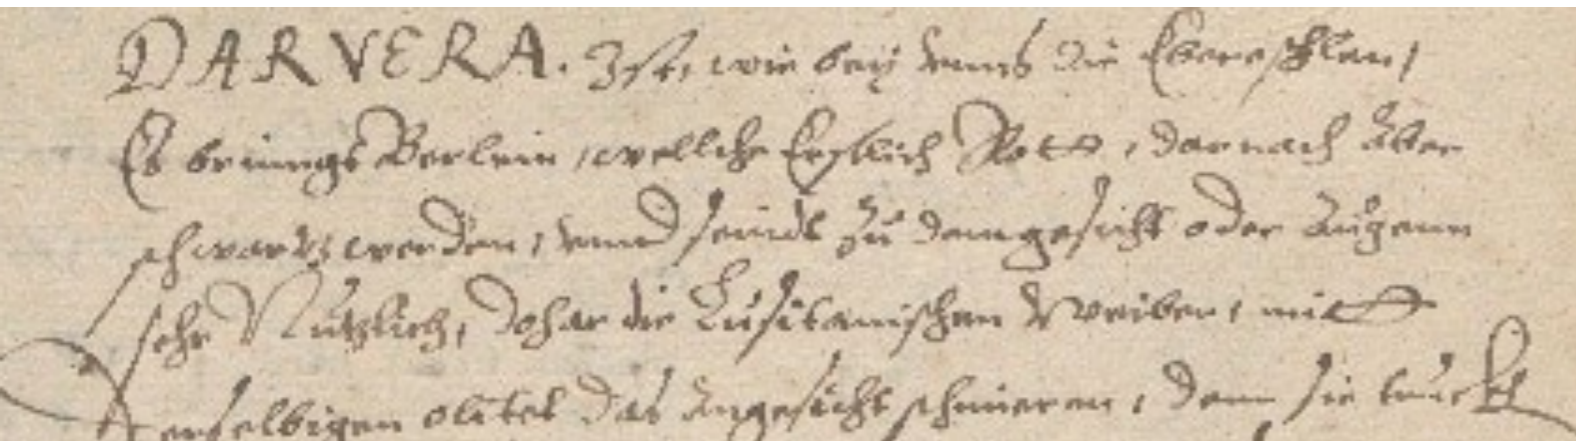 DARVERA. Ist, wie beÿ vnns die Ebereschlen,
Es bringt Berlein, wellche Erstlich Rott, darnach aber
schwartz werden, vnnd seindt zu dem gesicht oder Augenn
sehr Nutzlich, daher die Lusitanischen Weiber, mitt
derselbigen olitet das Angesicht schmieren, dann sie